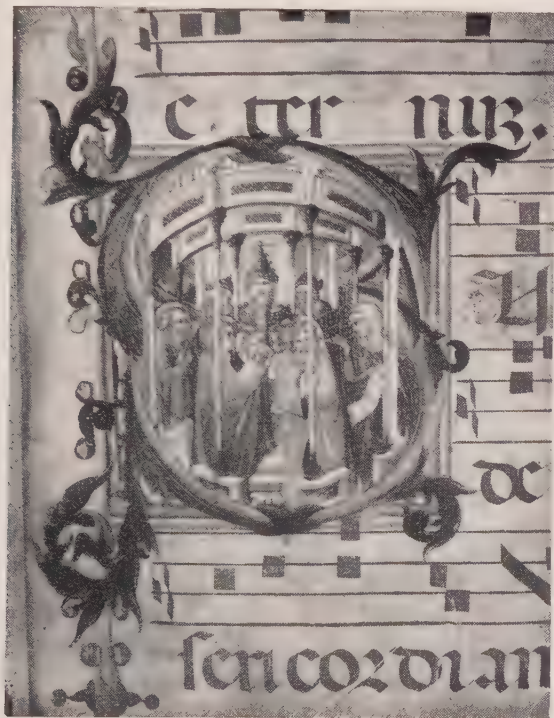 e ter nuz.
U
de
sericordiam